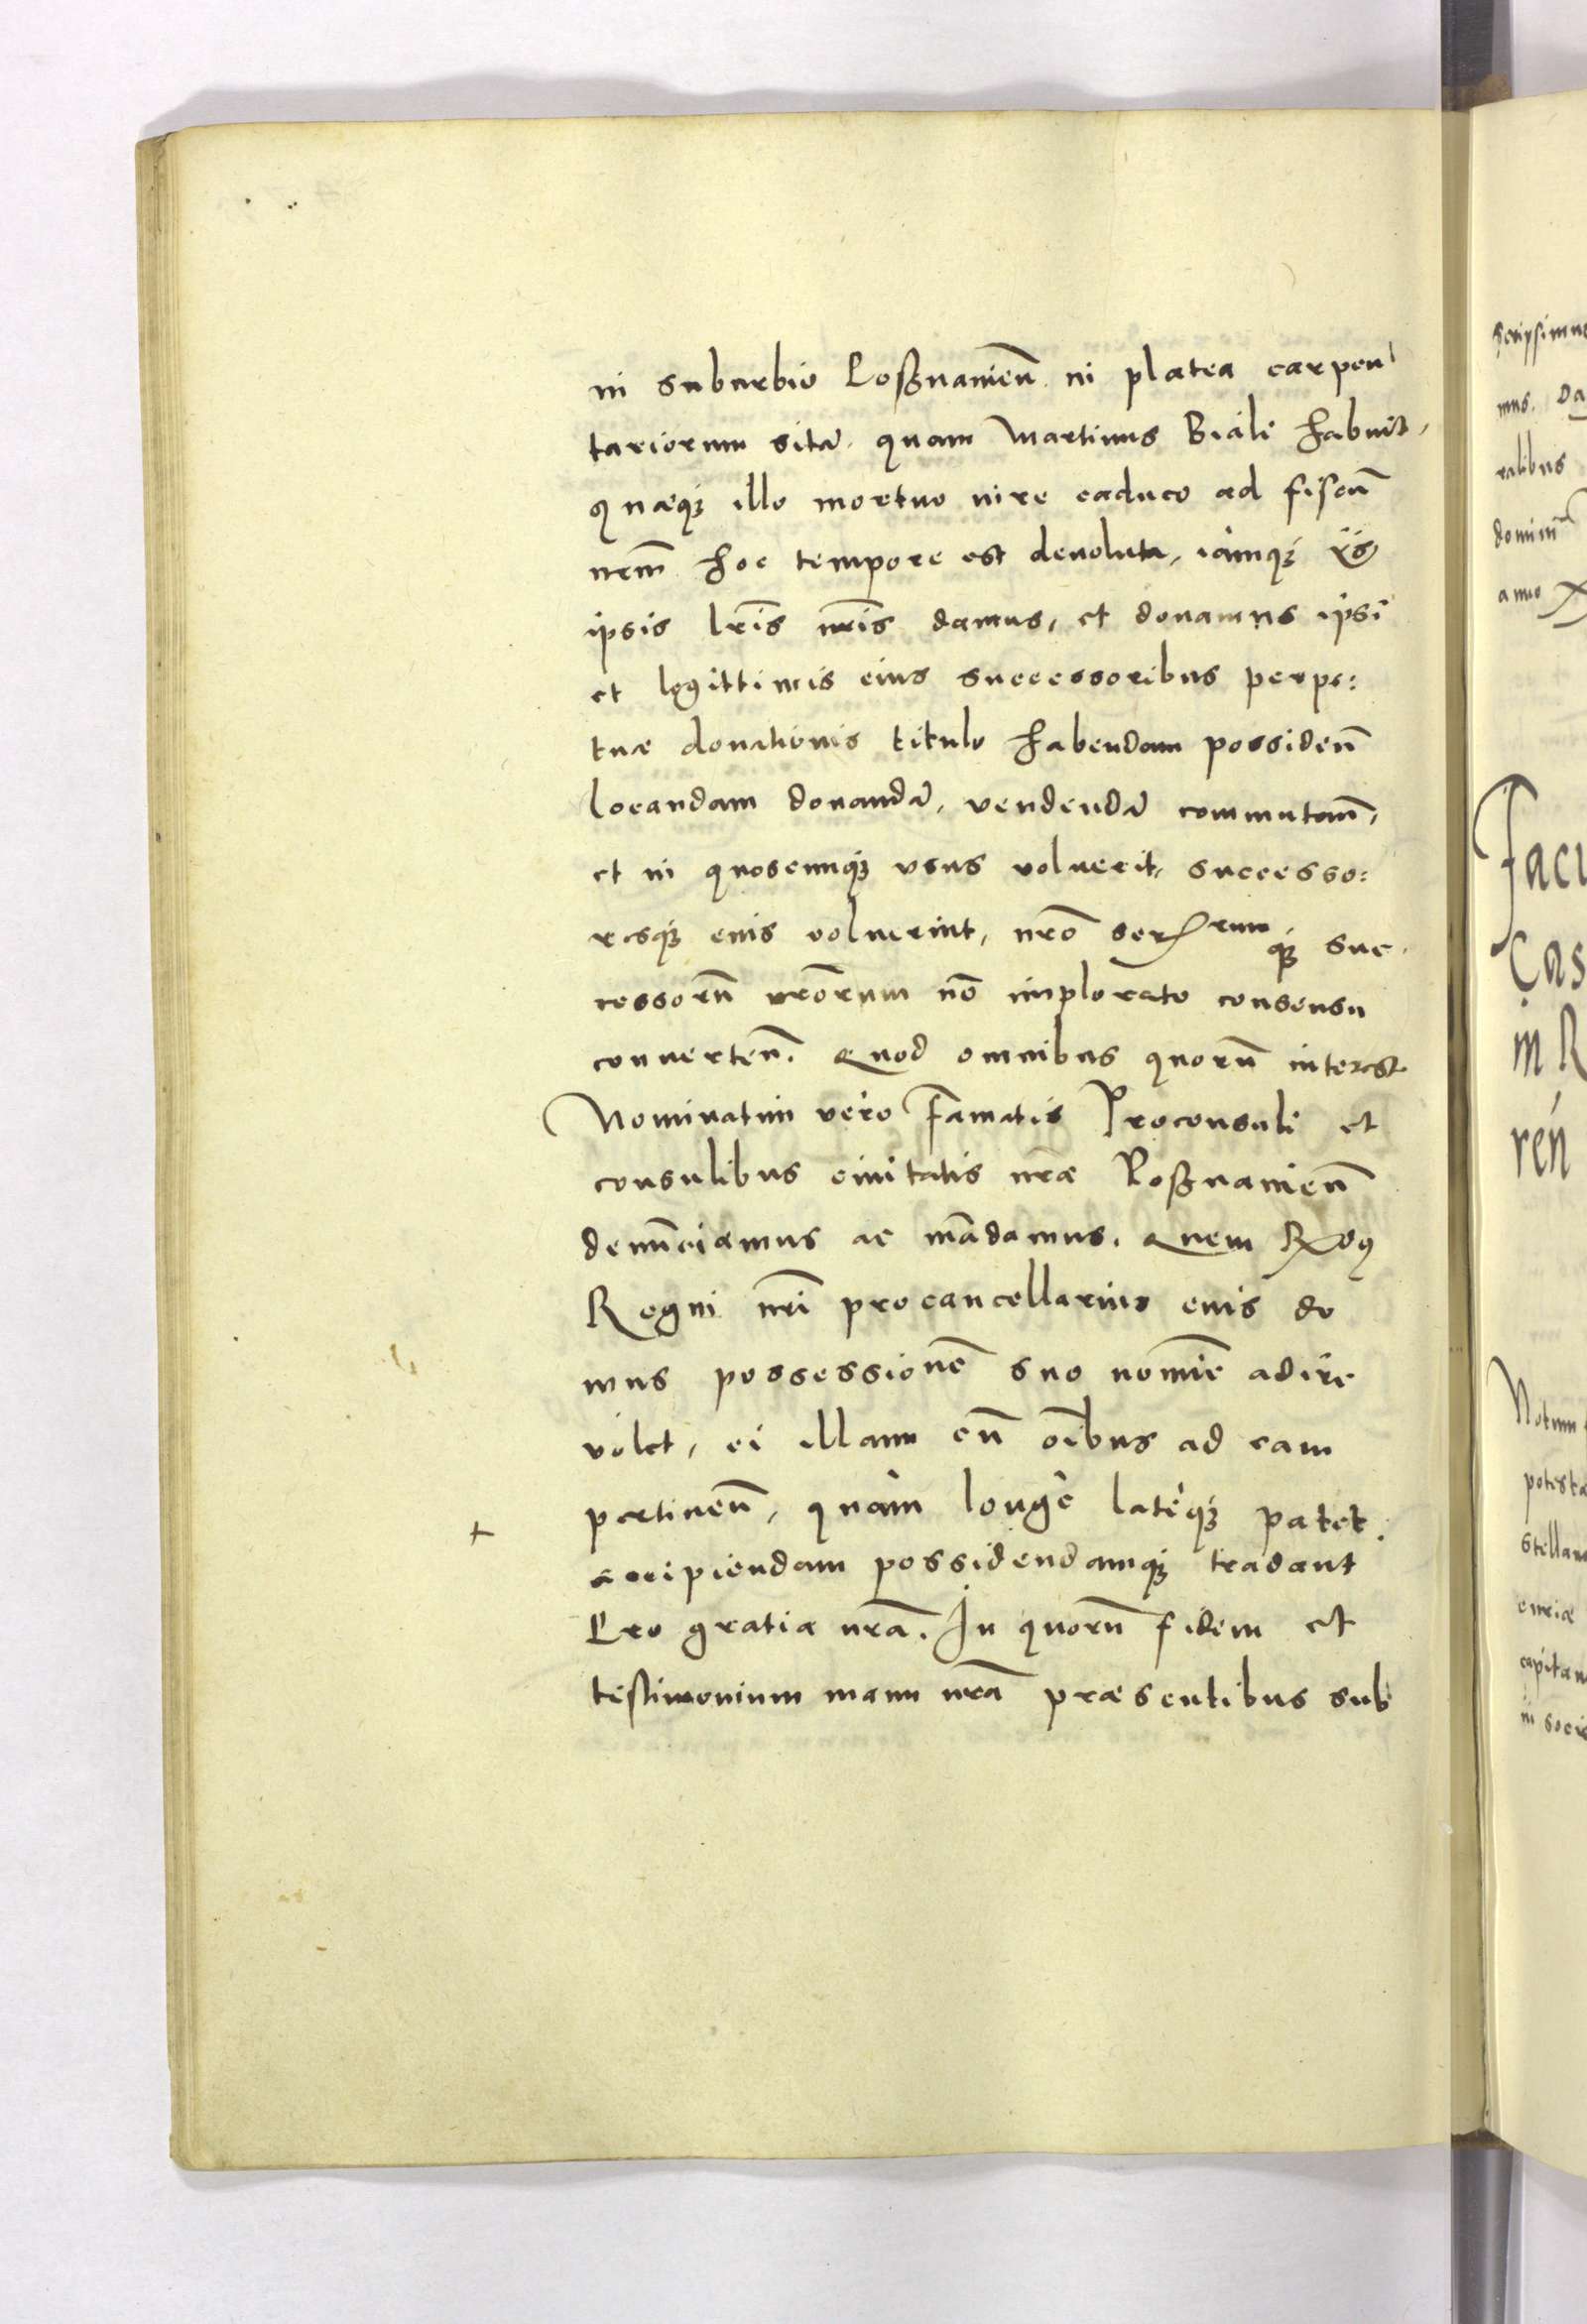 in suburbio Poßnanien̄. in platea carpen
tariorum sitā. quam Martinus Biali habuit,
Quæq́ꝫ illo mortuo iure caduco ad fiscū
nrm̄ hoc tempore est deuoluta, iamq́ꝫ
ipsis lr̄is nr̄is damus, et donamus ipsi
et legittimis eius successoribus perpe:
tuæ donationis titulo habendam possiden̄
locandam donandā, vendendā commutan̄,
et in quoscunq́ꝫ vsus voluerit, successo:
resq́ꝫ eius voluerint, nr̄o ser rum q́ꝫ suc
cessorū nr̄orum nō implorato consensu
conuerten̄. Quod omnibus quorū interest
Nominatim vero Famatis Proconsuli et
consulibus ciuitatis nr̄æ Poßnanien̄
denūciamus ac mādamus. Quem
Regni nr̄i procancellarius eius do
mus possessionē suo nomīe adire
volet, ei illam cū oībus ad eam
pertinen̄, quàm longè latèq́ꝫ patet.
accipiendam possidendamq́ꝫ tradant
Pro gratia nr̄a. In quorū fidem et
testimonium manu nr̄a præsentibus sub
scripsimus
mus. Da
ralibus
domin
anno
Facu
Cas
in R
ren
Notum
potesta
stellan
curiæ
capitan
in soci